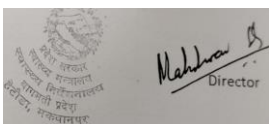 प्रदेश सरकार
स्वास्थ्य मन्त्रालय
स्वास्थ्य निर्देशनालय
बागमती प्रदेश
हेटौंडा, मकवानपुर
Director